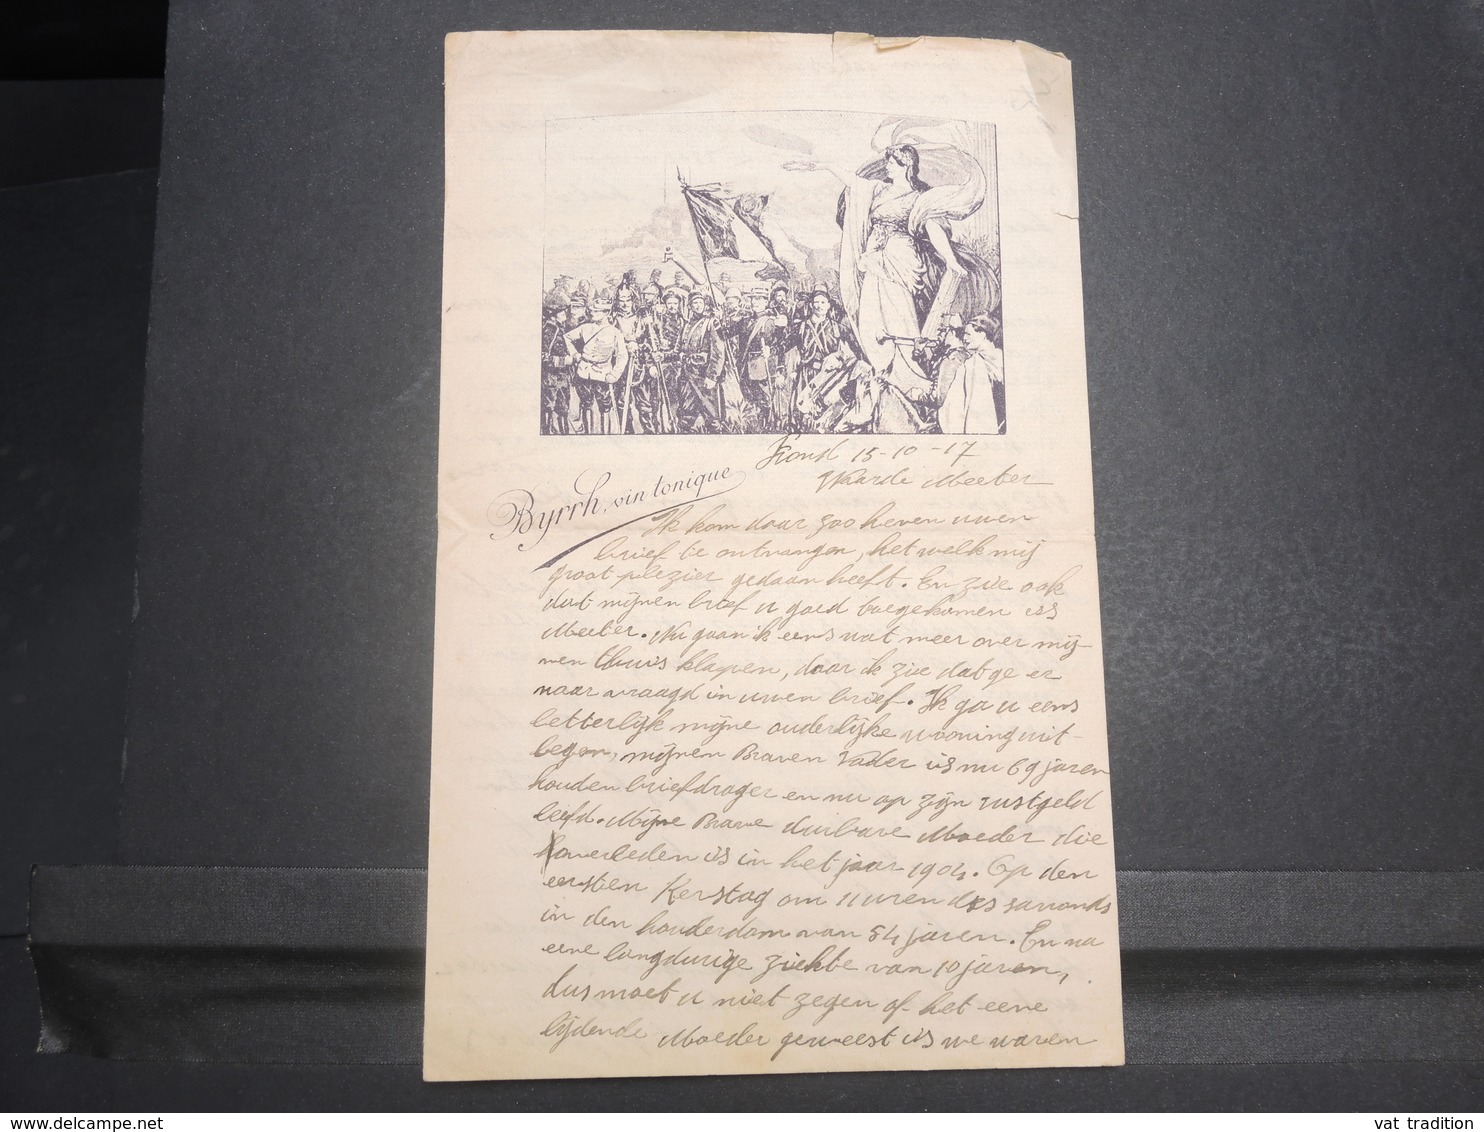 Front 15-10-17
Waarde Meeter
Byrrh, vin tonique
Ik kom daar zoo heven uwen
brief te ontvangen, het welk mij
groot plezier gedaan heeft. En zie ook
dat mijnen brief u goed toegekomen is
Meeter. Nu gaan ik eens wat meer over mij-
nen thuis klapen, daar ik zie dat ge er
naar vraagd in uwen brief. Ik ga u eens
letterlijk mijne ouderlijke wooning uit-
legen, mijnen Braven Vader is nu 69 jaren
houden briefdrager en nu op zijn rustgeld
leefd. Mijne Brave durbare Moeder die
overleden is in het jaar 1904. Op den
eersten Kerstag om 11 uren des savonds
in den houderdom van 54 jaren. En na
eene langdurige ziekte van 10 jaren,
dus moet u niet zegen of het eene
lijdende Moeder geweest is we waren
vat tradition